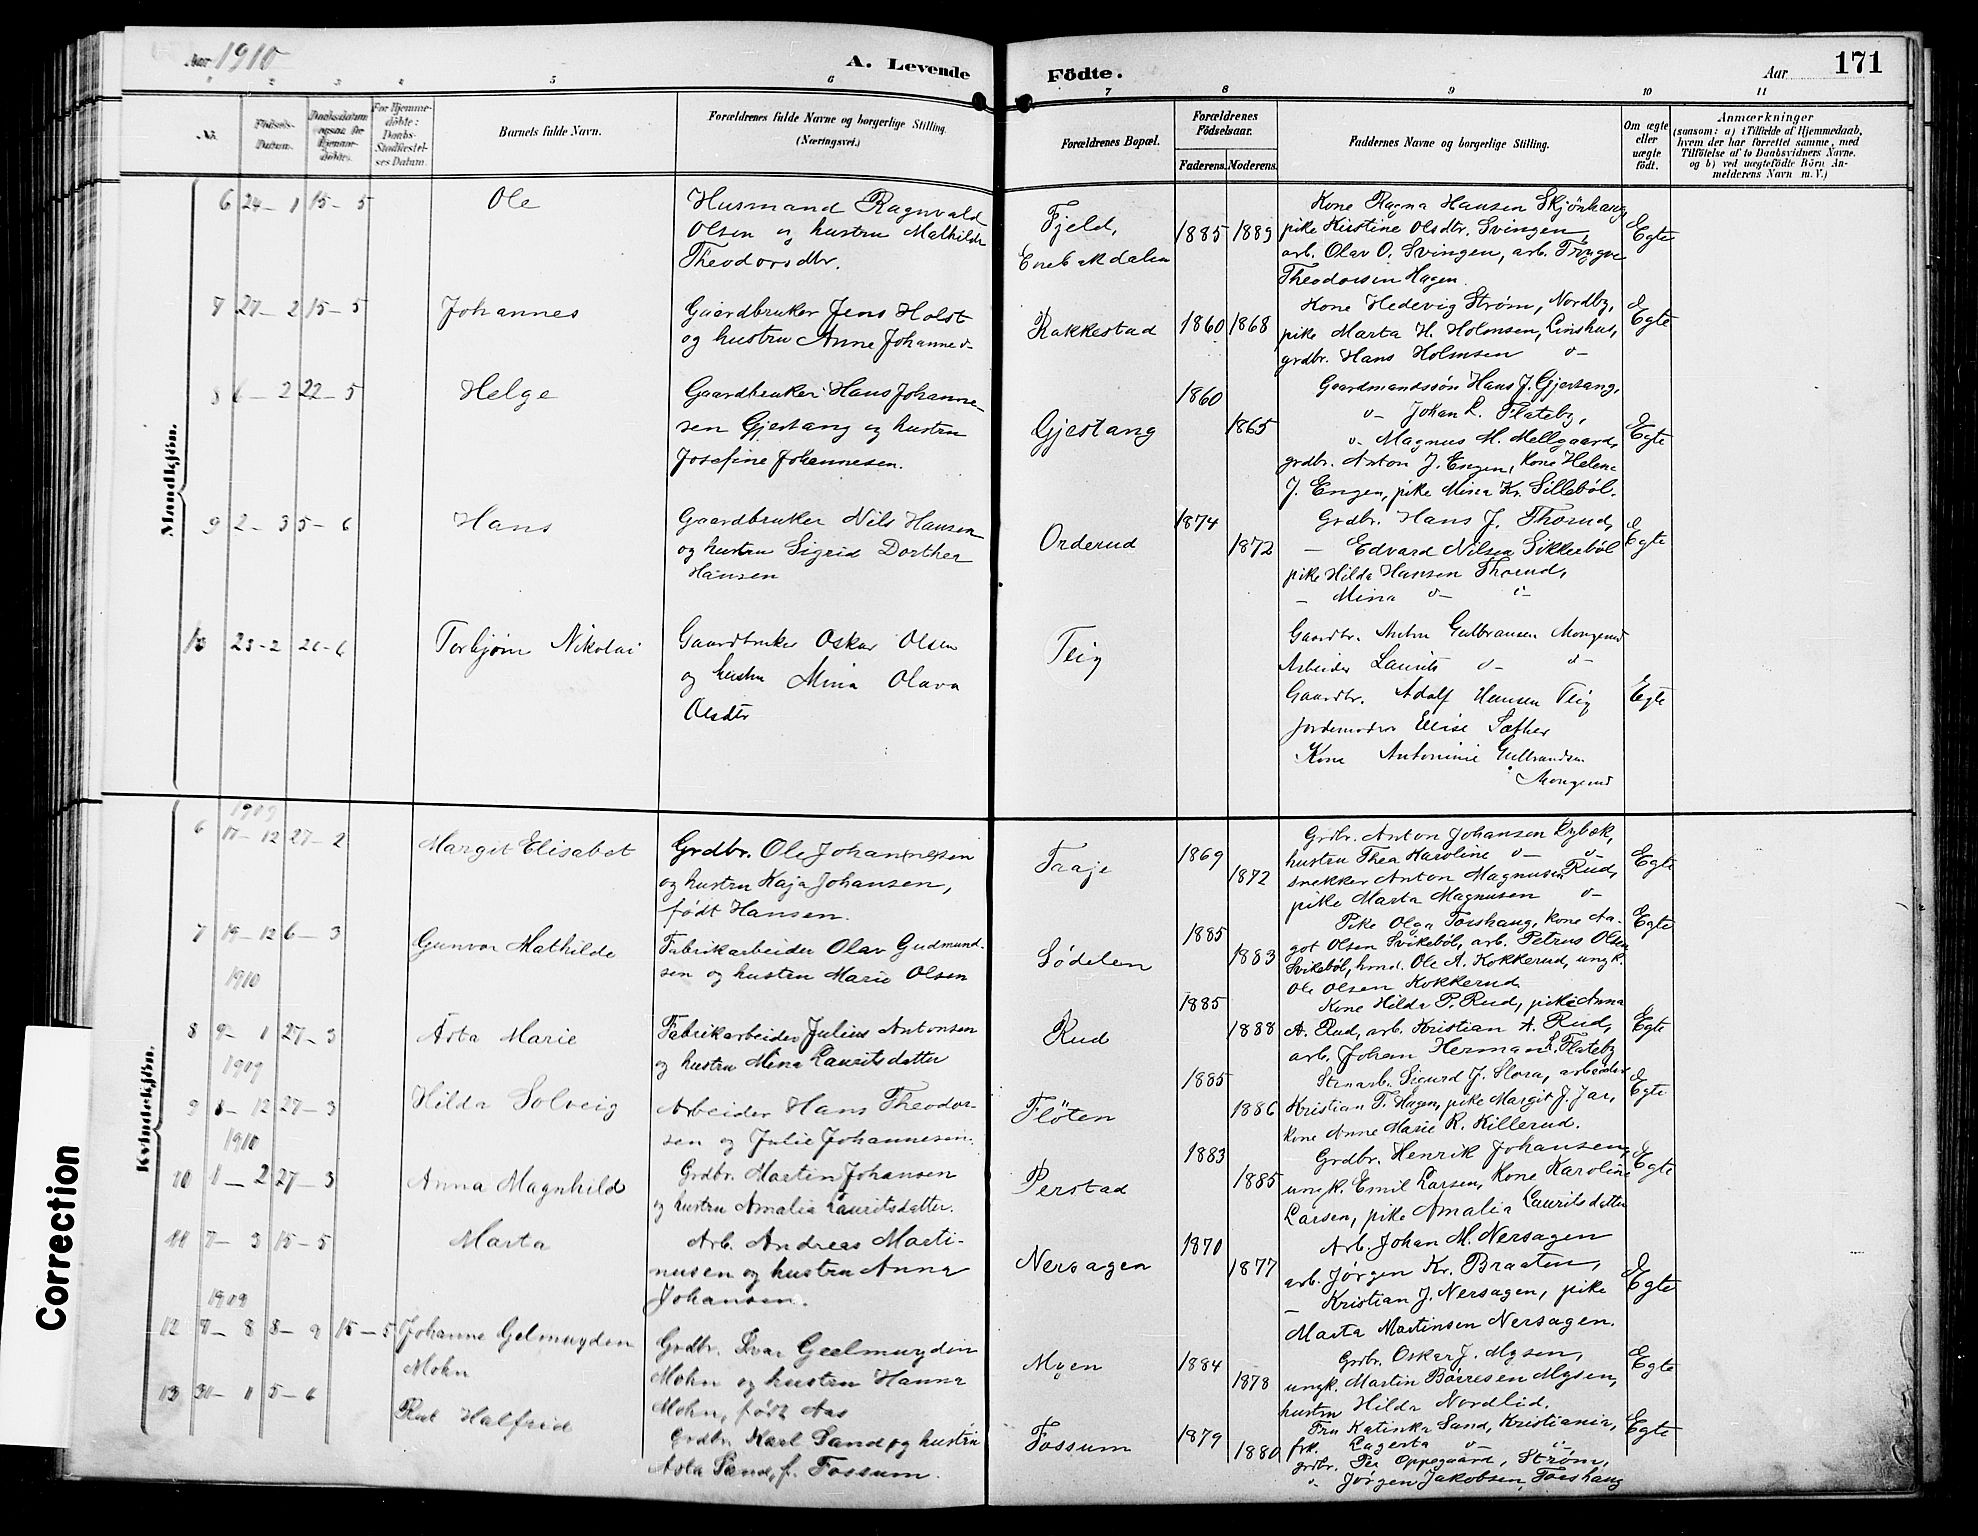 Aar 1910
A. Levende Födte.
Aar
171
1 2 3 4 5 6 7 8 9 10 11
No.
Födsels-
Datum.
Daabsdatum
ogsaa for
Hjemme-
döbte.
For Hjemme-
döbte:
Daabs-
Stadfæstel-
ses Datum.
Barnets fulde Navn.
Forældrenes fulde Navne og borgerlige Stilling.
(Næringsvei.)
Forældrenes Bopæl.
Forældrenes
Födselsaar.
Faderens. Moderens.
Faddernes Navne og borgerlige Stilling.
Om ægte
eller
uægte
født.
Anmærkninger
(saasom: a) i Tilfælde af Hjemmedaab,
hvem der har forrettet samme, med
Tilföielse af to Daabsvidners Navne.
og b) ved uægtefödte Börn An-
melderens Navn m. V.)
Mandkjön.
6 24 - 1 15 - 5 Ole
Husmand Ragnvald
Olsen og hustru Mathilde
Theodorsdtr.
Fjeld,
Enebakdalen
1885 1889
Kone Ragna Hansen Skjönhaug,
pike Kristine Olsdtr. Svingen,
arb. Olav O. Svingen, arb. Trÿgve
Theodorsen Hagen.
Egte
7 27 - 2 15 - 5 Johannes
Gaardbruker Jens Holst
og hustru Anne Johanne
Rakkestad
1860 1868
Kone Hedevig Strøm, Nordby,
pike Marta H. Holmsen, Linshus,
grdbr. Hans Holmsen
Egte
8 6 - 2 22 - 5 Helge
Gaardbruker Hans Johanne-
sen Gjestang og hustru
Josefine Johannesen.
Gjestang
1860 1865
Gaardmandssön Hans J. Gjestang,
Johan L. Flateby,
Magnus M. Mellgaard,
grdbr. Anton J. Engen, Kone Helene
J. Engen, pike Mina Kr. Silleböl.
Egte
9 2 - 3 5 - 6 Hans
Gaardbruker Nils Hansen
og hustru Sigrid Dorthea
Hansen
Orderud
1874 1872
Grdbr. Hans J. Thorud,
- Edvard Nilsen Sikkeböl
pike Hilda Hansen Thorud,
- Mina
Egte
10 23 - 2 26 - 6 Torbjørn Nikolai
Gaardbruker Oskar Olsen
og hustru Mina Olava
Olsdtr
Teig
Gaardbr. Anton Gulbransen Mongerud
Arbeider Laurits
Gaardbr. Adolf Hansen Teig
Jordemodror Elise Sæther
Kone Antonine Gulbrandsen
Mongerud
Egte
Kvindekjön.
1909
6 17 - 12 27 - 2 Margit Elisabet
Grdbr. Ole Johannesen
og hustru Kaja Johansen,
født Hansen.
Traje
1869 1872
Grdbr. Anton Johansen Dybæk,
hustru Thea Karoline
snekker Anton Magnusen Rud,
pike Marta Magnusen
Egte
7 19 - 12 6 - 3 Gunvor Mathilde
Fabrikarbeider Olav Gudmund-
sen og hustru Marie Olsen
Södelen
1885 1883
Pike Olga Torshaug, kone Aa-
got Olsen Svikeböl, arb. Petrus Olsen
Svikeböl, hmd. Ole A. Kokkerud, ungk.
Ole Olsen Kokkerud
Egte
1910
8 9 - 1 27 - 3 Asta Marie
Fabrikarbeider Julius Antonsen
og hustru Mina Lauritsdatter
Rud
1885 1888
Kone Hilda P. Rud, pike Anna
A. Rud, arb. Kristian A. Rud,
arb. Johan Herman L. Flateby
Egte
1909
9 8 - 12 27 - 3 Hilda Solveig
Arbeider Hans Theodor-
sen og Julie Johannesen.
Flöten
1885 1886
Stenarb. Sigurd J. Slora, arbeider
Kristian T. Hagen, pike Margit J. Jar,
kone Anne Marie R. Killerud.
Egte
1910
10 1 - 2 27 - 3 Anna Magnhild
Grdbr. Martin Johansen
og hustru Amalia Lauritsdatter.
Perstad
1883 1885
Grdbr. Henrik Johansen,
ungk. Emil Larsen, Kone Karoline
Larsen, pike Amalia Lauritsdatter
Egte
11 7 - 3 15 - 5 Marta
Arb. Andreas Marti-
nusen og hustru Anna
Johansen.
Nersagen
1870 1877
Arb. Johan M. Nersagen
arb. Jørgen Kr. Braaten,
- Kristian J. Nersagen, pike
Marta Martinsen Nersagen.
Egte
1909
12 8 8 - 9 15 - 5 Johanne Gelmuyden
Mohn
Grdbr. Ivar Geelmuyden
Mohn og hustru Hanna
Mohn, født Aas
Myen
1884 1878
Grdbr. Oskar J. Mysen,
ungk. Martin Börresen Mysen,
hustru Hilda Nordlid.
Egte
13 31 - 1 5 - 6 Rut Halfrid
Grdbr. Karl Sand og hustru
Asta Sand, f. Fossum.
Fossum
1879 1880
Fru Katinka Sand, Kristiania,
frk. Lagerta
grdbr. Per Oppegaard, Strøm,
Jørgen Jakobsen, Torshaug
Egte
Correction